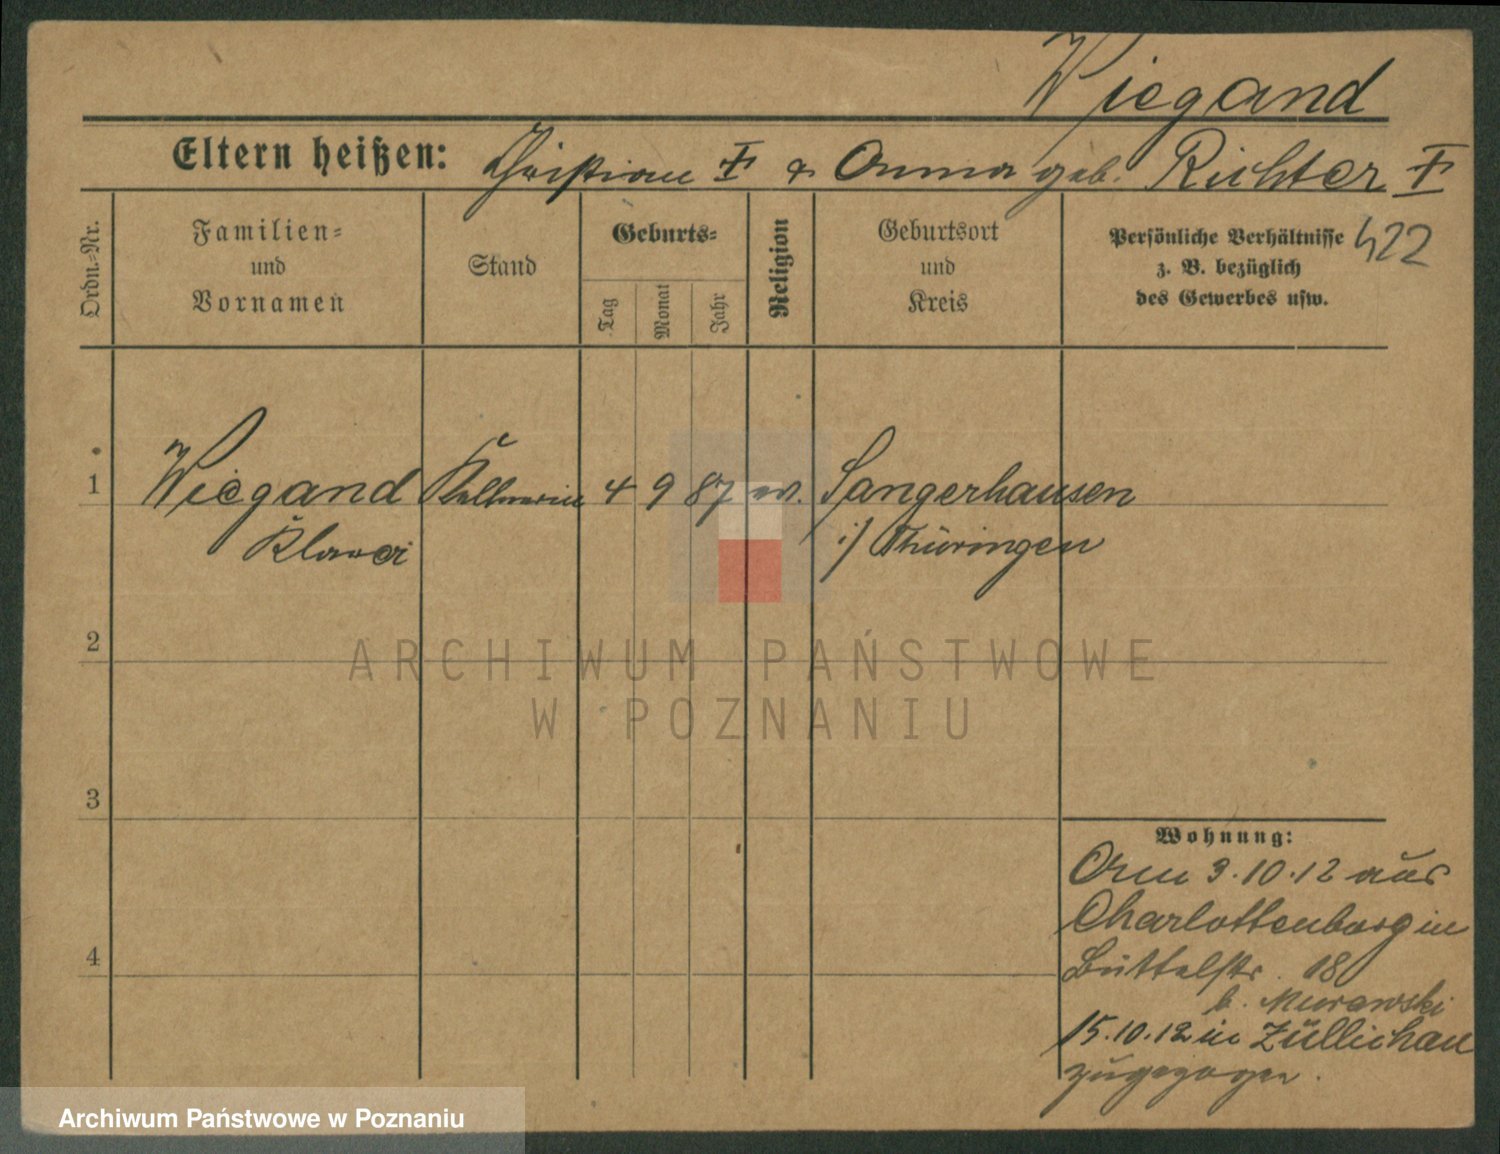 Wiegand
Eltern heißen: Christian † & Anna geb. Richter †
Ordn.-Nr.
Familien-
und
Vornamen
Stand
Geburts-
Tag
Monat
Jahr
Religion
Geburtsort
und
Kreis
Persönliche Verhältnisse 422
z. B. bezüglich
des Gewerbes usw.
1 Wiegand Kellnerin 4 9 87 ev. Sangerhausen
Klara i/ Thüringen
2
ARCHIWUM PAŃSTWOWE
W POZNANIU
3
Wohnung:
Am 3.10.12 aus
Charlottenburg in
Büttelstr. 18
b. Murawski
4
15.10.12 in Züllichau
zugezogen.
Archiwum Państwowe w Poznaniu